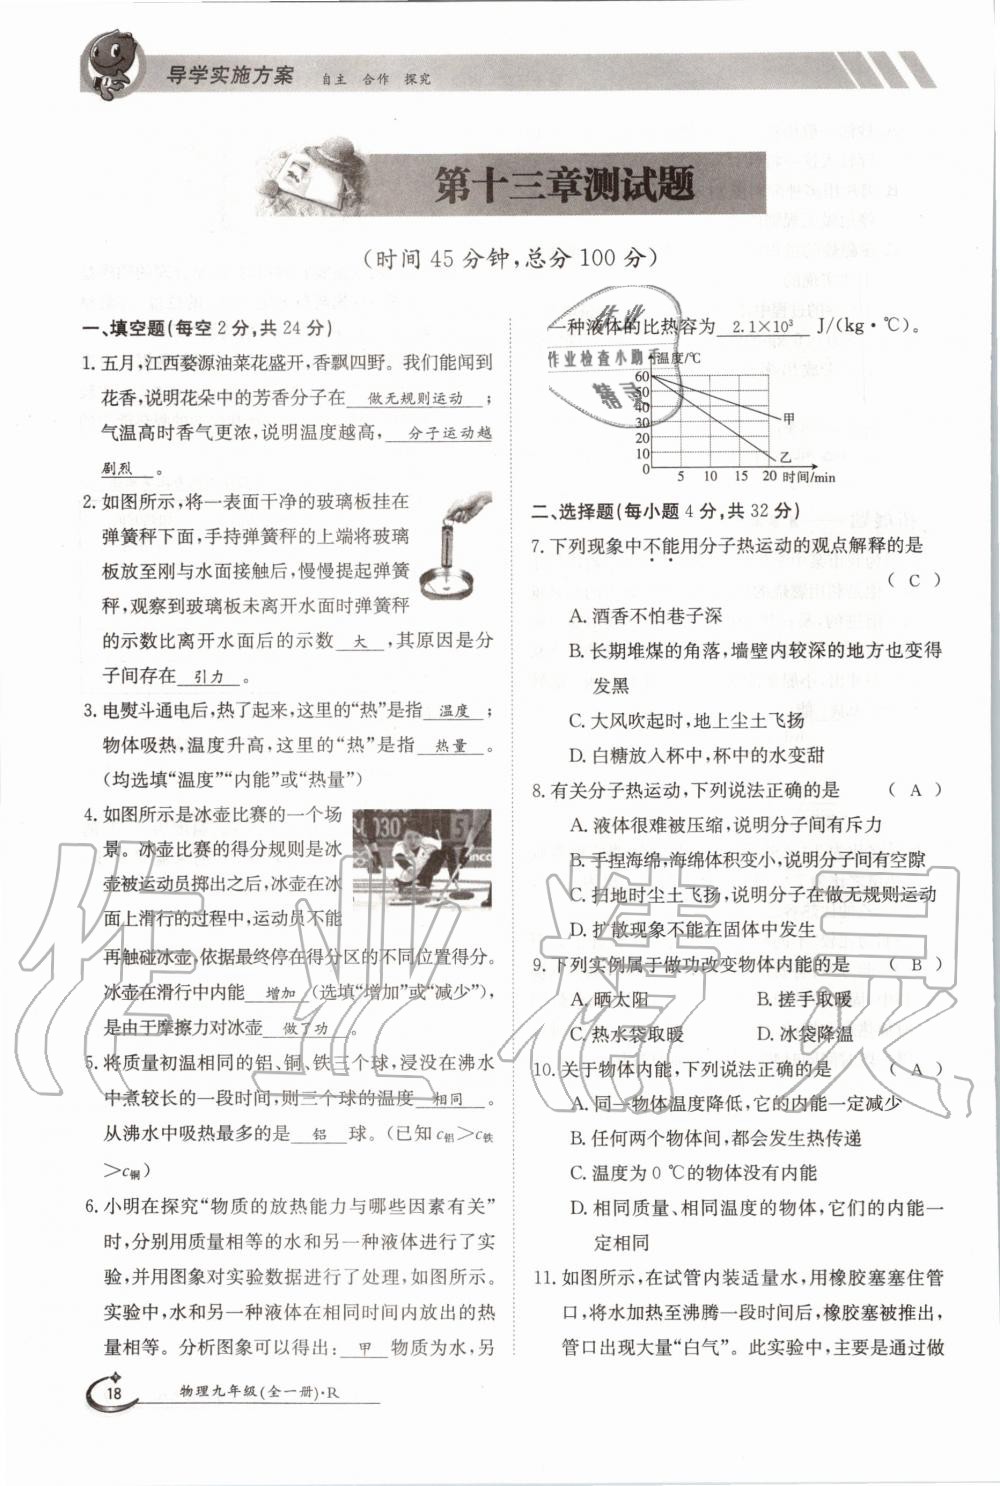 导学实施方案 自主 合作 探究
第十三章测试题
(时间 45 分钟,总分 100 分)
一、填空题(每空 2 分,共 24 分)
1. 五月,江西婺源油菜花盛开,香飘四野。我们能闻到
花香,说明花朵中的芳香分子在 做无规则运动 ;
气温高时香气更浓,说明温度越高, 分子运动越
剧烈 。
2. 如图所示,将一表面干净的玻璃板挂在
弹簧秤下面,手持弹簧秤的上端将玻璃
板放至刚与水面接触后,慢慢提起弹簧
秤,观察到玻璃板未离开水面时弹簧秤
的示数比离开水面后的示数 大 ,其原因是分
子间存在 引力 。
3. 电熨斗通电后,热了起来,这里的“热”是指 温度 ;
物体吸热,温度升高,这里的“热”是指 热量 。
(均选填“温度”“内能”或“热量”)
4. 如图所示是冰壶比赛的一个场
景。冰壶比赛的得分规则是冰
壶被运动员掷出之后,冰壶在冰
面上滑行的过程中,运动员不能
再触碰冰壶,依据最终停在得分区的不同位置得分。
冰壶在滑行中内能 增加 (选填“增加”或“减少”),
是由于摩擦力对冰壶 做了功 。
5. 将质量初温相同的铝、铜、铁三个球,浸没在沸水
中煮较长的一段时间,则三个球的温度 相同 。
从沸水中吸热最多的是 铝 球。(已知 c铝>c铁
>c铜)
6. 小明在探究“物质的放热能力与哪些因素有关”
时,分别用质量相等的水和另一种液体进行了实
验,并用图象对实验数据进行了处理,如图所示。
实验中,水和另一种液体在相同时间内放出的热
量相等。分析图象可以得出: 甲 物质为水,另
一种液体的比热容为 2.1×10³ J/(kg·℃)。
作业
作业检查小助手
精灵
温度/℃
60
50
40
30
20
10
0
5 10 15 20 时间/min
甲
乙
二、选择题(每小题 4 分,共 32 分)
7. 下列现象中不能用分子热运动的观点解释的是
( C )
A. 酒香不怕巷子深
B. 长期堆煤的角落,墙壁内较深的地方也变得
发黑
C. 大风吹起时,地上尘土飞扬
D. 白糖放入杯中,杯中的水变甜
8. 有关分子热运动,下列说法正确的是 ( A )
A. 液体很难被压缩,说明分子间有斥力
B. 手捏海绵,海绵体积变小,说明分子间有空隙
C. 扫地时尘土飞扬,说明分子在做无规则运动
D. 扩散现象不能在固体中发生
9. 下列实例属于做功改变物体内能的是 ( B )
A. 晒太阳 B. 搓手取暖
C. 热水袋取暖 D. 冰袋降温
10. 关于物体内能,下列说法正确的是 ( A )
A. 同一物体温度降低,它的内能一定减少
B. 任何两个物体间,都会发生热传递
C. 温度为 0 ℃的物体没有内能
D. 相同质量、相同温度的物体,它们的内能一
定相同
11. 如图所示,在试管内装适量水,用橡胶塞塞住管
口,将水加热至沸腾一段时间后,橡胶塞被推出,
管口出现大量“白气”。此实验中,主要是通过做
18 物理九年级(全一册)·R
作业精灵